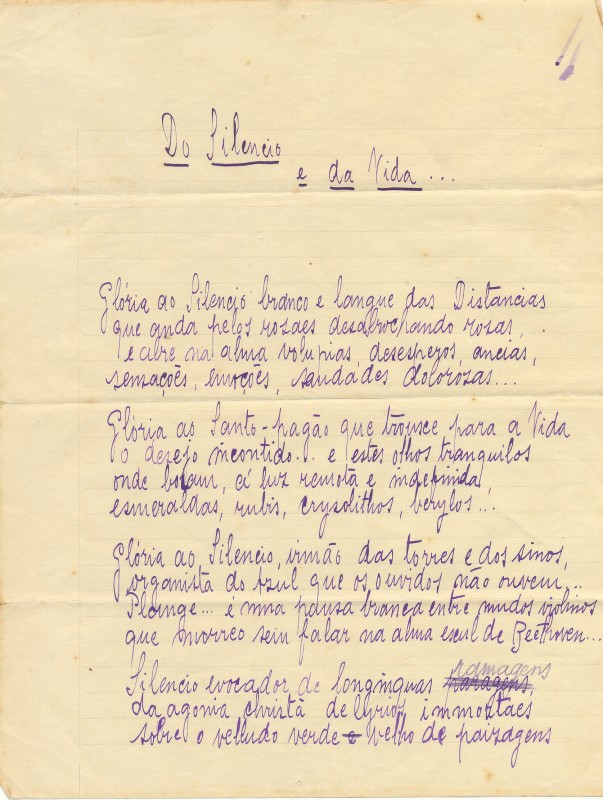 Do Silencio
e da Vida...
Glória ao Silencio branco e langue das Distancias
que anda pelos rosaes desabrochando rosas,
e abre na alma volupias, desesperos, ancias,
sensações, emoções, saudades dolorosas...
Glória ao Santo-pagão que trousce para a Vida
o desejo incontido... e estes olhos tranquilos
onde boiam, á luz remota e indefinida,
esmeraldas, rubis, crysolithos, berylos...
Glória ao Silencio, irmão das torres e dos sinos,
organista do Azul que os ouvidos não ouvem...
Plange... é uma pausa branca entre mudos violinos
que morreo sem falar na alma de Beethoven...
ramagens
Silencio evocador de longinquas paragens
da agonia christã de lyrios immortaes
sobre o velludo verde e velho de paizagens